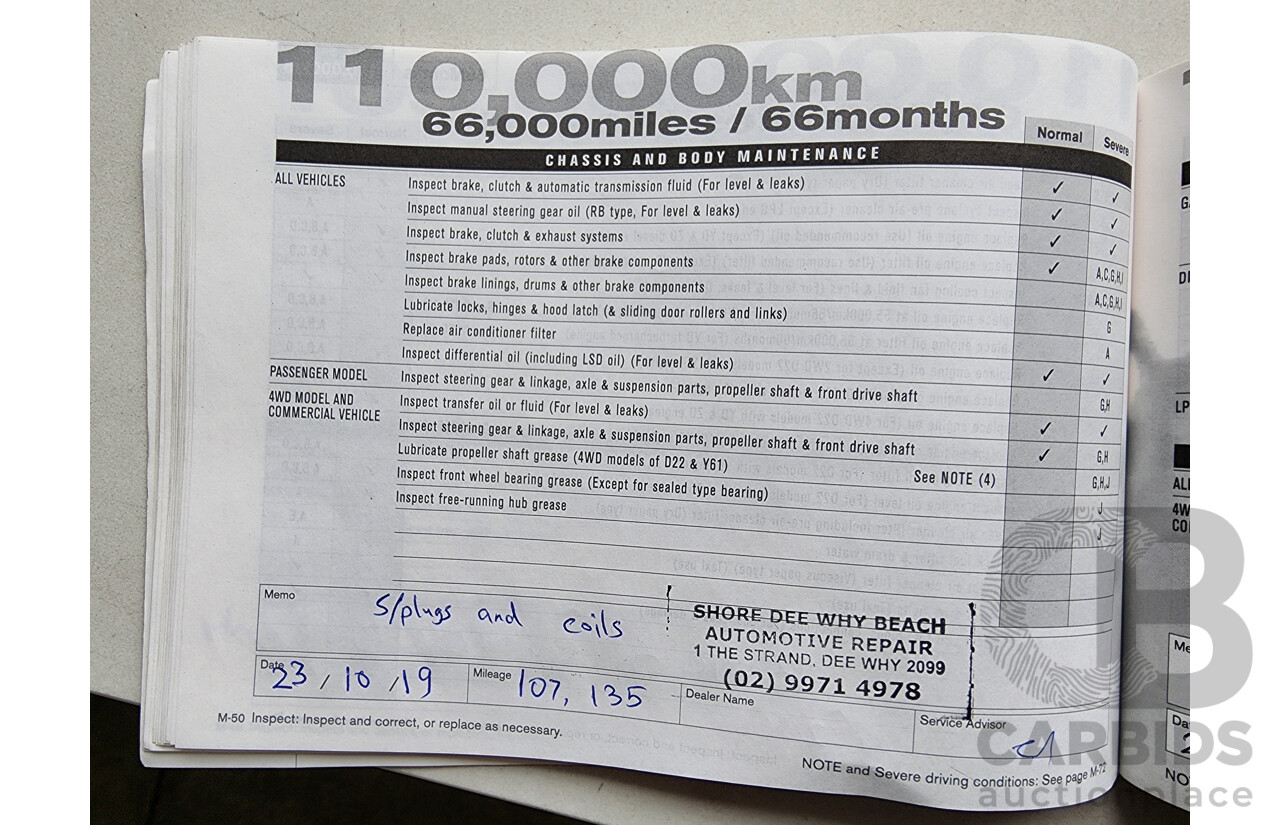 110,000km
66,000miles / 66months
Normal Severe
CHASSIS AND BODY MAINTENANCE
ALL VEHICLES Inspect brake, clutch & automatic transmission fluid (For level & leaks) ✓ ✓
Inspect manual steering gear oil (RB type, For level & leaks) ✓ ✓
Inspect brake, clutch & exhaust systems ✓ ✓
Inspect brake pads, rotors & other brake components ✓ A,C,G,H,I
Inspect brake linings, drums & other brake components A,C,G,H,I
Lubricate locks, hinges & hood latch (& sliding door rollers and links) G
Replace air conditioner filter A
Inspect differential oil (including LSD oil) (For level & leaks) ✓ ✓
PASSENGER MODEL Inspect steering gear & linkage, axle & suspension parts, propeller shaft & front drive shaft G,H
4WD MODEL AND COMMERCIAL VEHICLE Inspect transfer oil or fluid (For level & leaks) ✓ ✓
Inspect steering gear & linkage, axle & suspension parts, propeller shaft & front drive shaft ✓ G,H
Lubricate propeller shaft grease (4WD models of D22 & Y61) See NOTE (4) G,H,J
Inspect front wheel bearing grease (Except for sealed type bearing) J
Inspect free-running hub grease J
Memo S/plugs and coils
SHORE DEE WHY BEACH
AUTOMOTIVE REPAIR
1 THE STRAND, DEE WHY 2099
(02) 9971 4978
Date 23/10/19 Mileage 107,135 Dealer Name Service Advisor
M-50 Inspect: Inspect and correct, or replace as necessary.
NOTE and Severe driving conditions: See page M-72
CB
CARBIDS
auctionplace